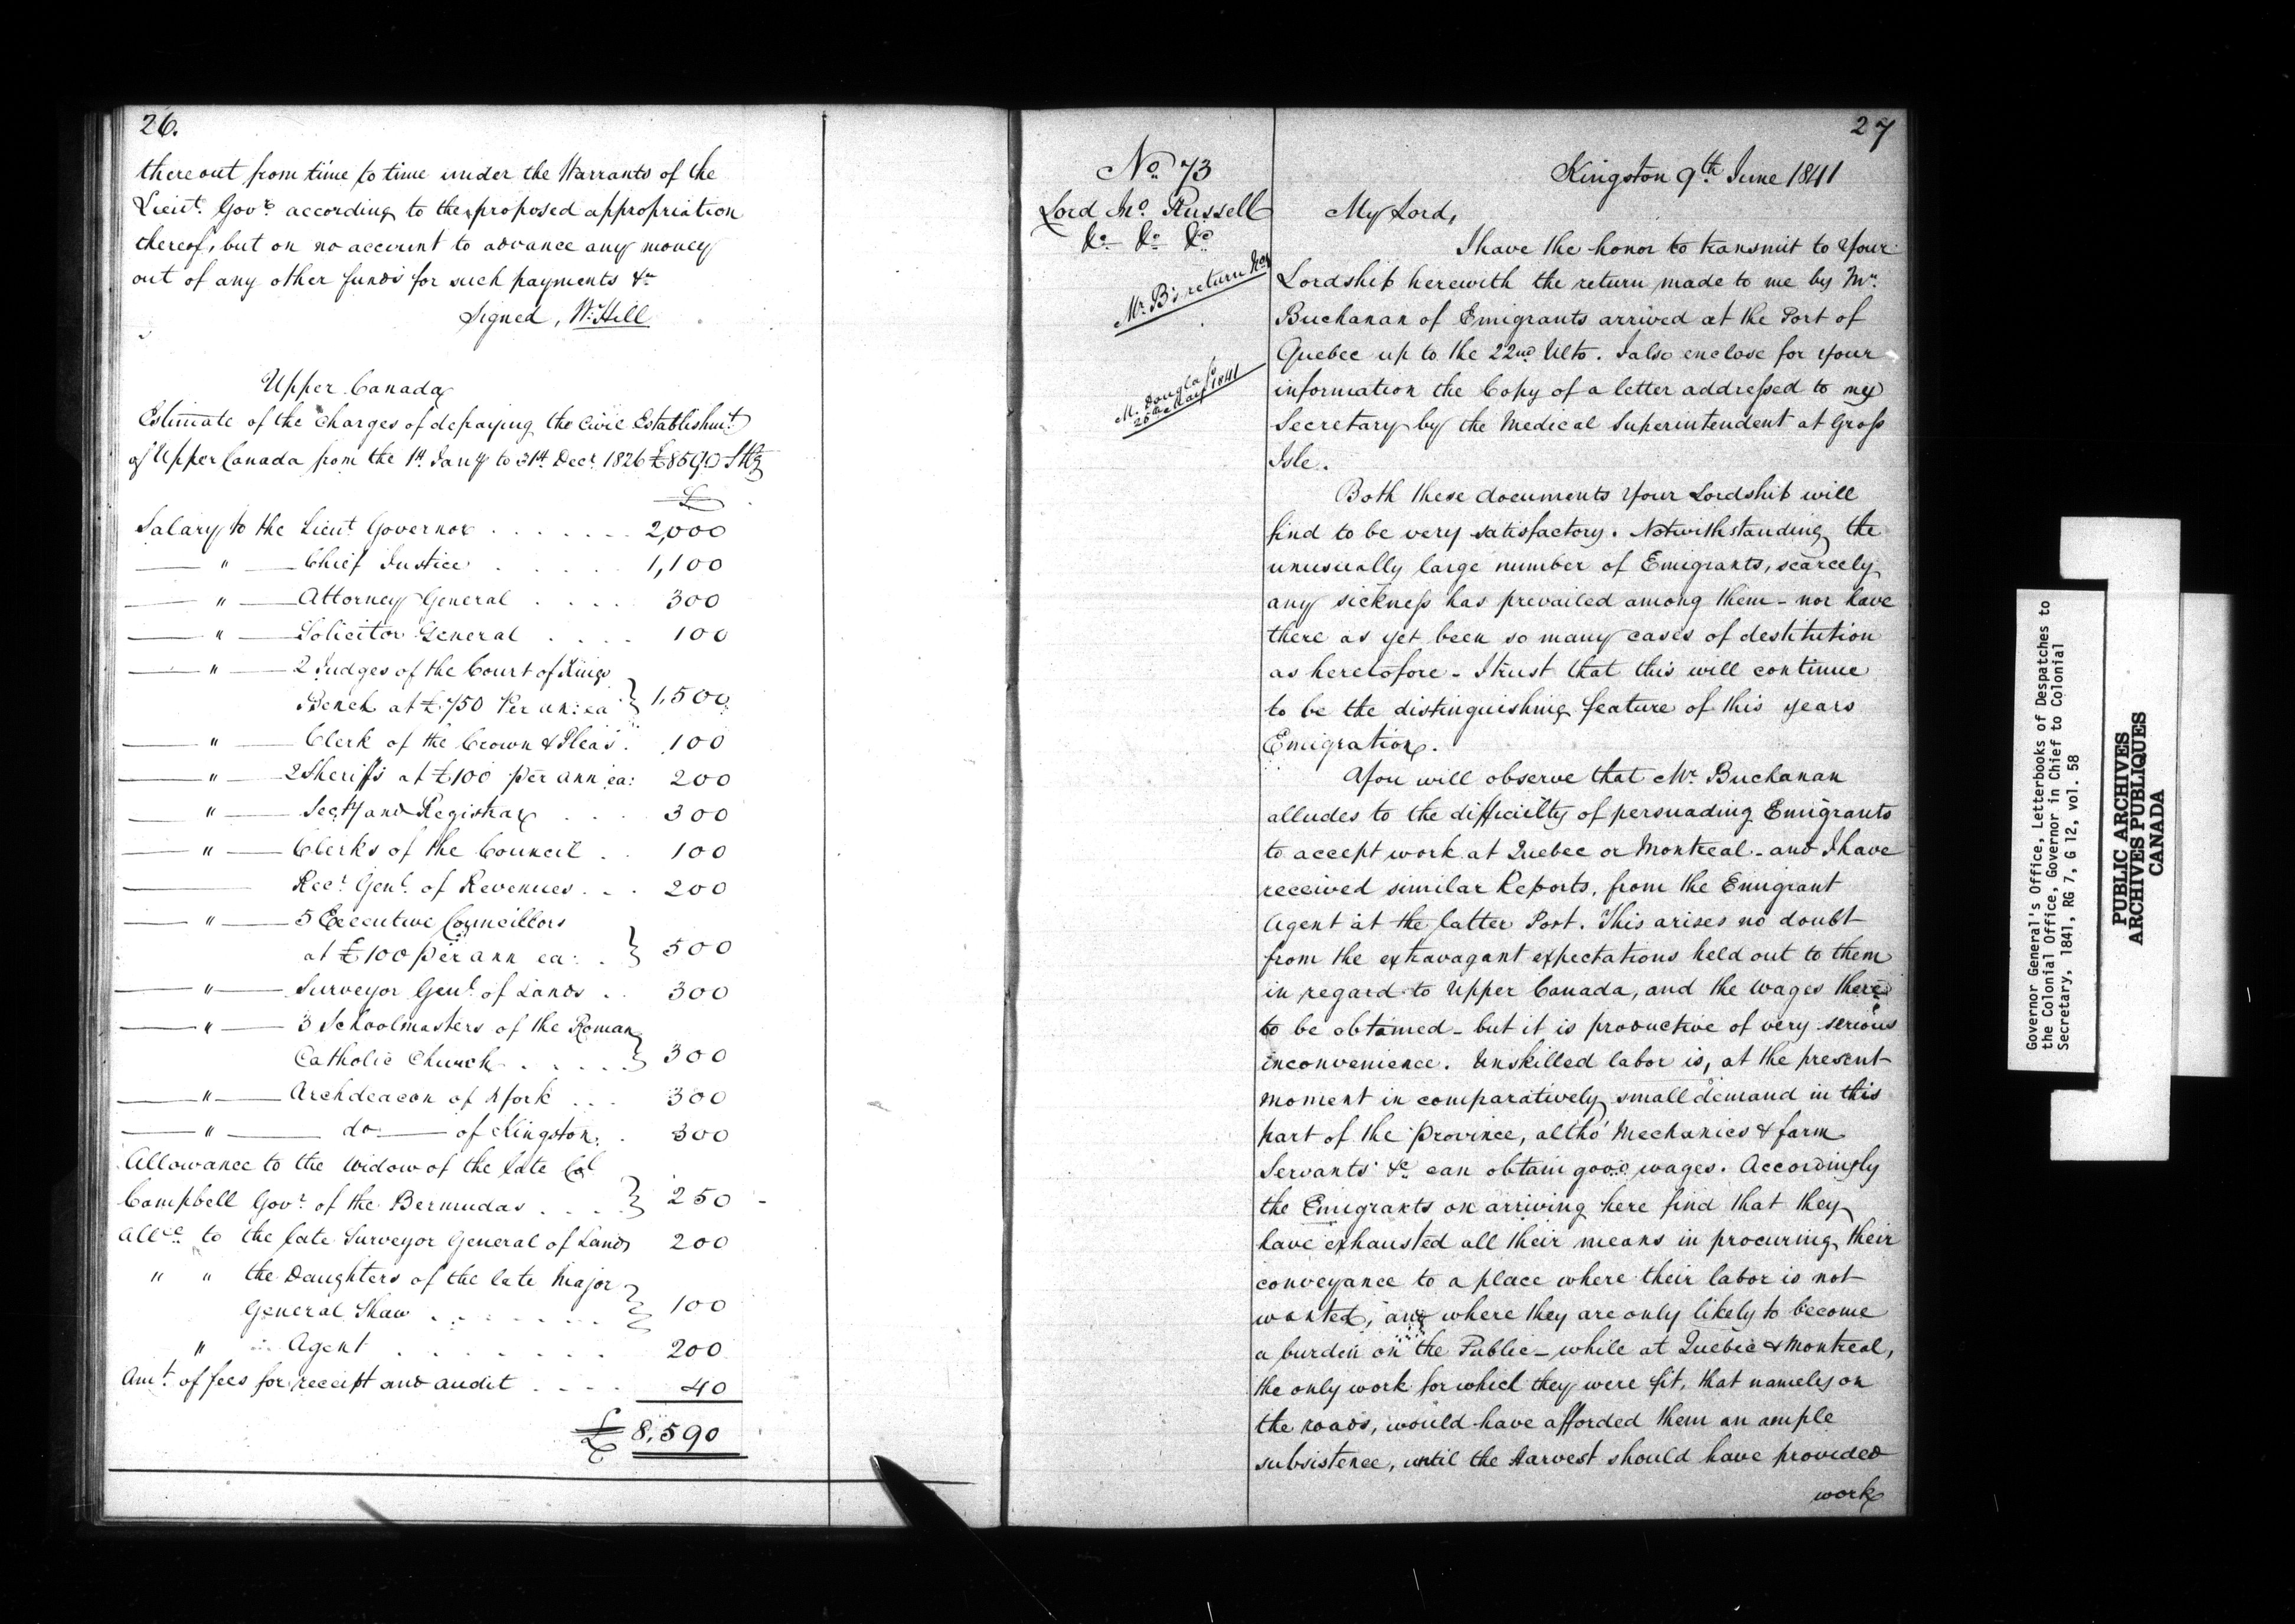 26.
thereout from time to time under the Warrants of the
Lieut. Govr. according to the proposed appropriation
thereof, but on no account to advance any money
out of any other funds for such payments &c
Signed, Wm. Hill
Upper Canada
Estimate of the Charges of defraying the Civil Establishmt.
of Upper Canada from the 1st. Jany to 31st. Decr. 1826 £8590 Stg
£
Salary to the Lieut Governor . . . . . . . 2,000
" Chief Justice . . . . . . 1,100
" Attorney General . . . . 300
" Solicitor General . . . . 100
" 2 Judges of the Court of Kings
Bench at £750 Per an: ea } 1,500
" Clerk of the Crown & Pleas . 100
" 2 Sheriffs at £100 per ann ea: 200
" Secty and Registrar . . . 300
" Clerks of the Council . . 100
Recr. Genl. of Revenues . . . 200
" 5 Executive Councillors
at £100 per ann ea: . } 500
" Surveyor Genl. of Lands . . 300
" 3 Schoolmasters of the Roman
Catholic Church . . . . . } 300
" Archdeacon of York . . . 300
" do of Kingston . . 300
Allowance to the Widow of the late Col
Campbell Govr. of the Bermudas . . . . } 250 -
Allce. to the late Surveyor General of Lands 200
" " the Daughters of the late Major
General Shaw . . . . . . . } 100
" Agent . . . . . . . 200
Amt. of fees for receipt and audit . . . . 40
£ 8,590
27
No. 73
Lord Jno. Russell
&c. &c. &c.
Mr. B's return
M. Douglass
26th May 1841
Kingston 9th. June 1841
My Lord,
I have the honor to transmit to Your
Lordship herewith the return made to me by Mr.
Buchanan of Emigrants arrived at the Port of
Quebec up to the 22nd Ulto. I also enclose for your
information the Copy of a letter addressed to my
Secretary by the Medical Superintendent at Gross
Isle.
Both these documents Your Lordship will
find to be very satisfactory. Notwithstanding the
unusually large number of Emigrants, scarcely
any sickness has prevailed among them - nor have
there as yet been so many cases of destitution
as heretofore - I trust that this will continue
to be the distinguishing feature of this years
Emigration.
You will observe that Mr Buchanan
alludes to the difficulty of persuading Emigrants
to accept work at Quebec or Montreal - and I have
received similar Reports, from the Emigrant
Agent at the latter Port. This arises no doubt
from the extravagant expectations held out to them
in regard to Upper Canada, and the wages there
to be obtained - but it is productive of very serious
inconvenience. Unskilled labor is, at the present
moment in comparatively small demand in this
part of the Province, altho' Mechanics & farm
Servants &c can obtain good wages. Accordingly
the Emigrants on arriving here find that they
have exhausted all their means in procuring their
conveyance to a place where their labor is not
wanted, and where they are only likely to become
a burden on the Public - while at Quebec & Montreal,
the only work for which they were fit, that namely on
the roads, would have afforded them an ample
subsistence, until the Harvest should have provided
work
Governor General's Office, Letterbooks of Despatches to
the Colonial Office, Governor in Chief to Colonial
Secretary, 1841, RG 7, G 12, vol. 58
PUBLIC ARCHIVES
ARCHIVES PUBLIQUES
CANADA